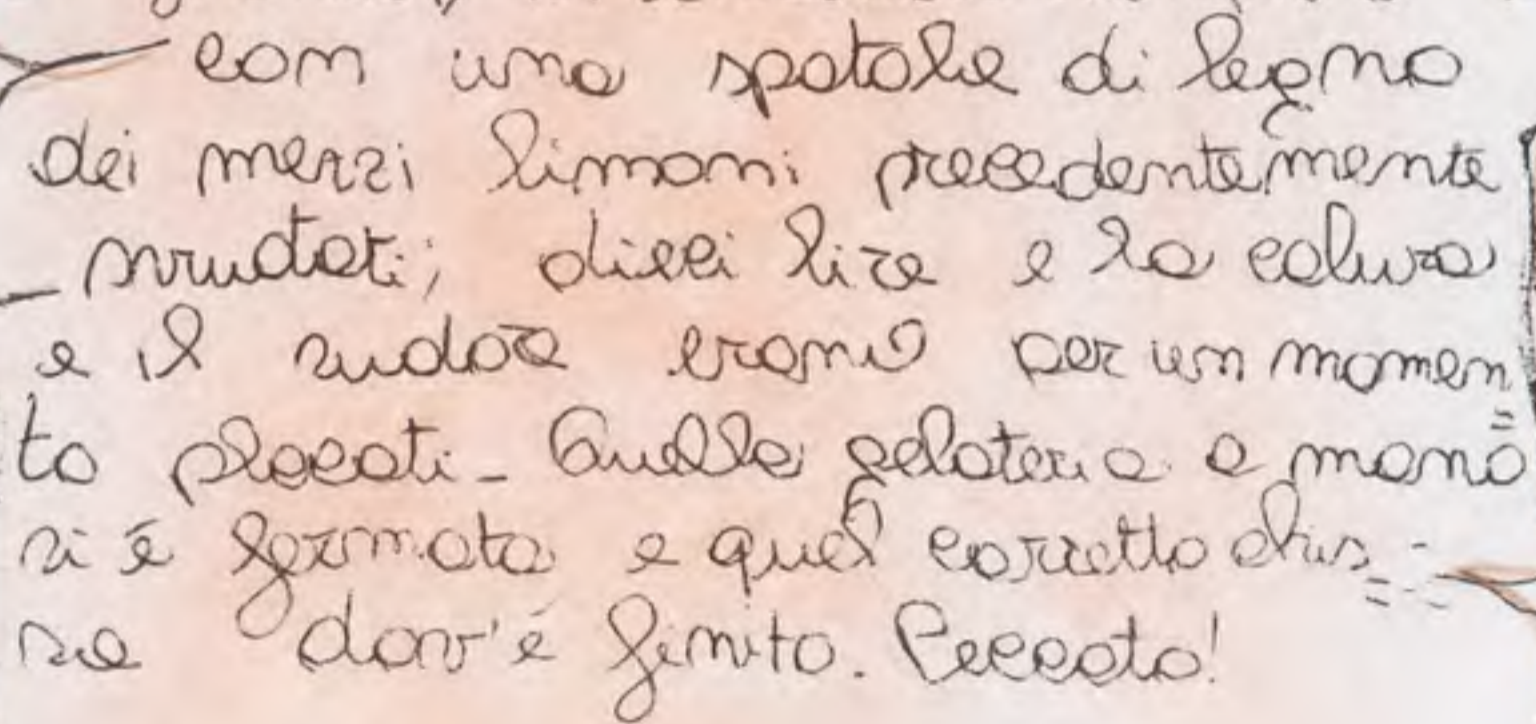 con una spatola di legno
dei mezzi limoni precedentemente
svuotati; dieci lire e la calura
e il sudore erano per un momen=
to placati - Quella gelateria a mano
si è fermata e quel carretto chis=
sa dov'è finito. Peccato!